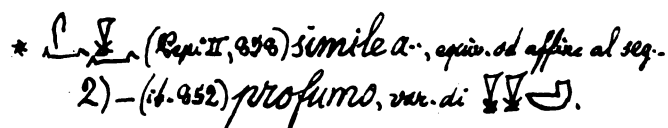 * (Pepi II, 858) simile a.., equiv. od affine al seg.-
2) – (ib. 852) profumo, var. di .